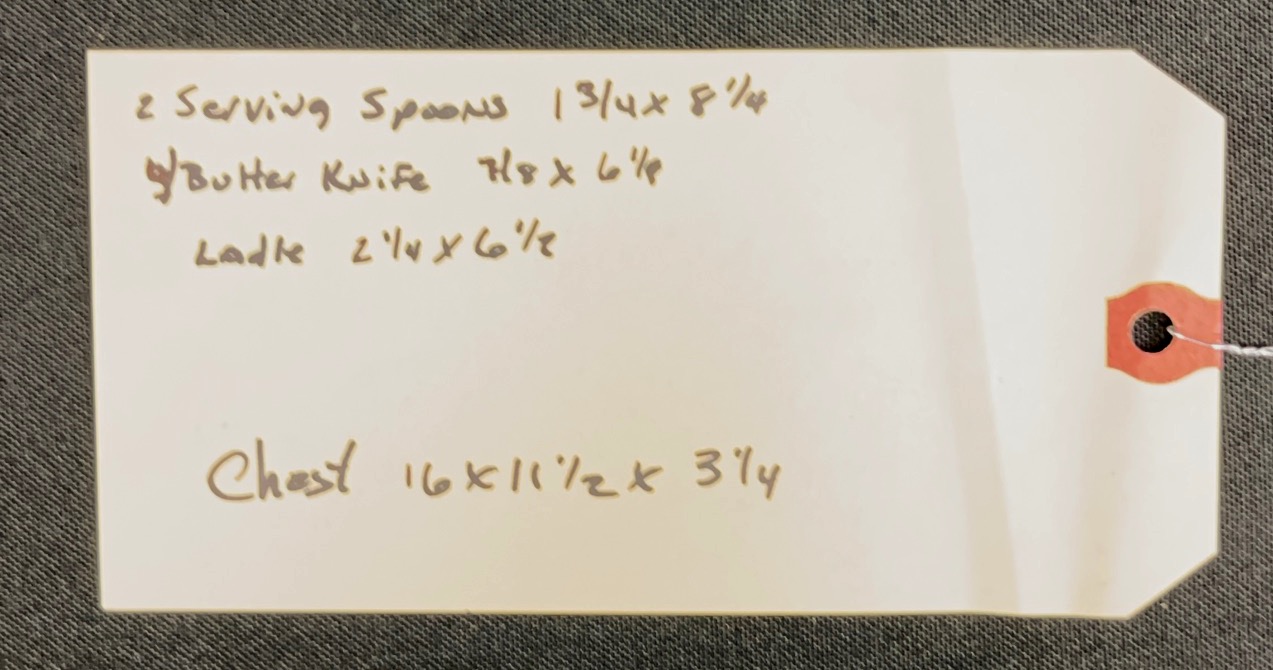 2 Serving Spoons 1 3/4 x 8 1/4
Butter Knife 7/8 x 6 1/8
Ladle 2 1/4 x 6 1/2
Chest 16 x 11 1/2 x 3 1/4